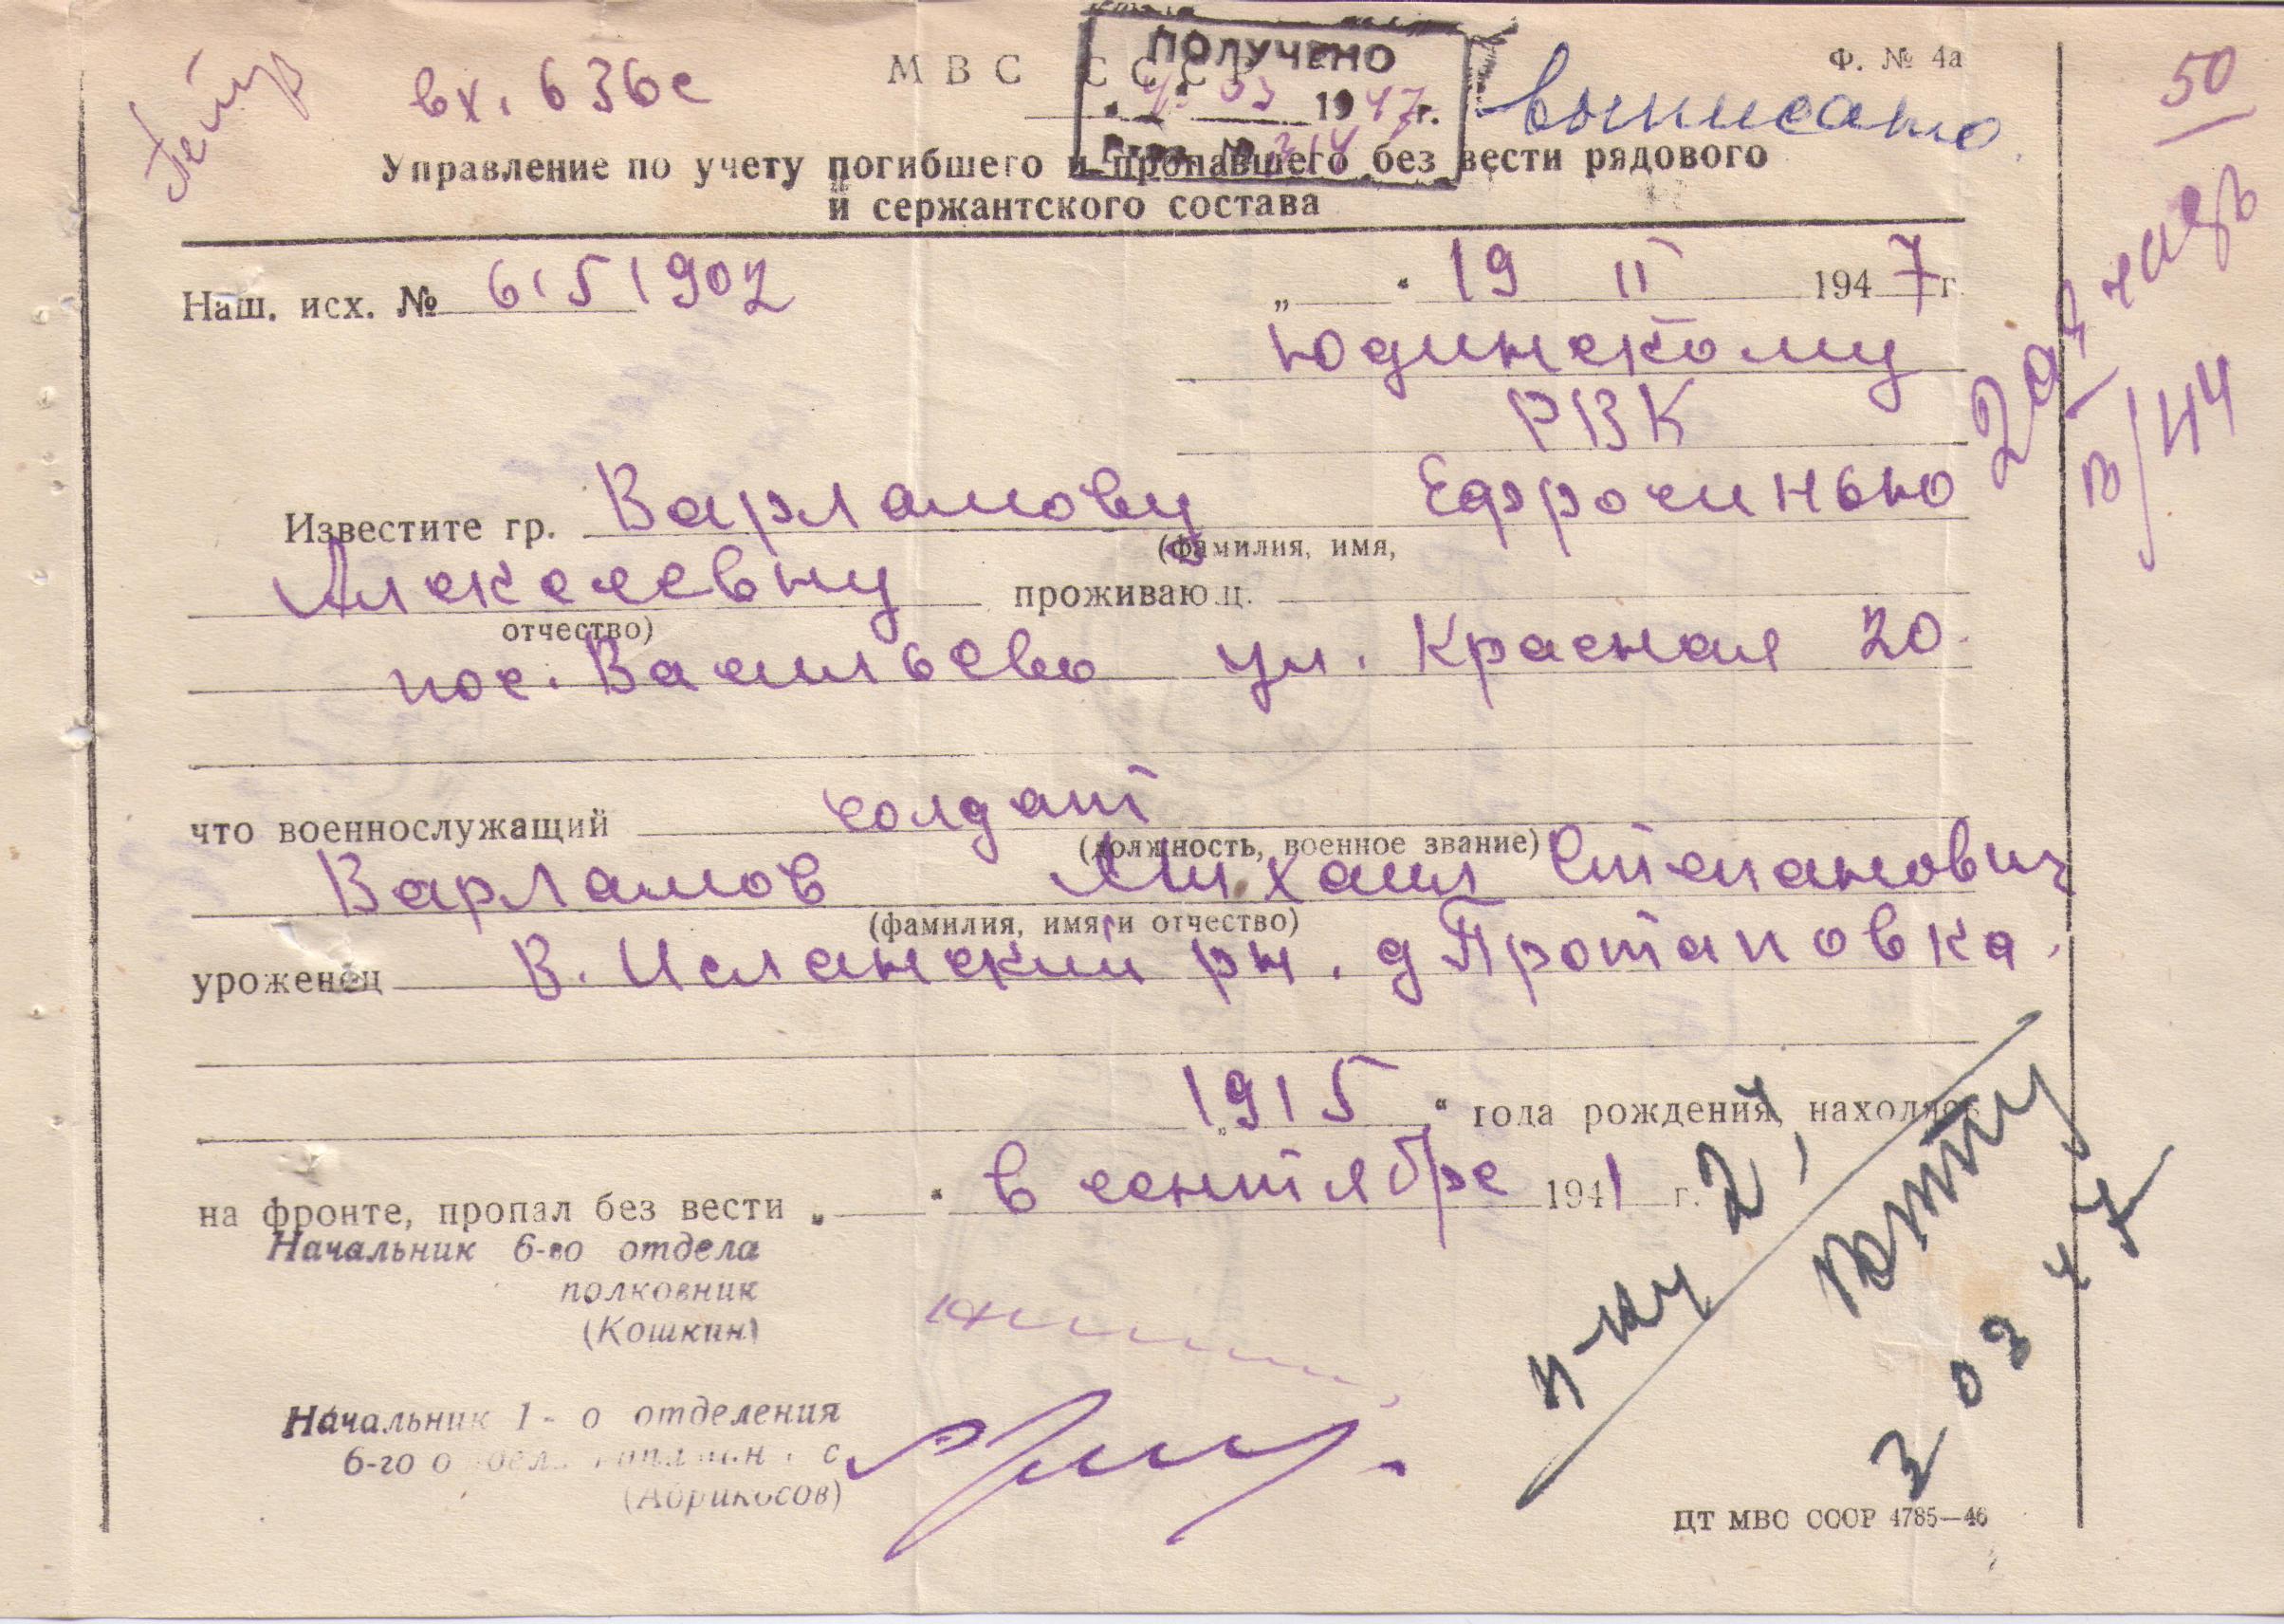 вх. 636с
М В С С С С Р
ПОЛУЧЕНО
03 1947 г.
Ф. № 4а
выписано
50
Управление по учету погибшего и пропавшего без вести рядового
и сержантского состава
Наш. исх. № 6151902
„ “ 19 II 1947 г.
Юдинскому
РВК
Известите гр. Варламову Ефросинью
(фамилия, имя,
Алексеевну проживающ.
отчество)
пос. Васильево ул. Красная 20.
что военнослужащий солдат
(должность, военное звание)
Варламов Михаил Степанович
(фамилия, имя и отчество)
уроженец В. Исланский рн. д Протаповка.
„1915“ года рождения, находясь
на фронте, пропал без вести „ “ в сентябре 1941 г.
Начальник 6-го отдела
полковник
(Кошкин)
Начальник 1-о отделения
6-го
(Абрикосов)
н-ку 2,
3 03 47
ЦТ МВС СССР 4785—46